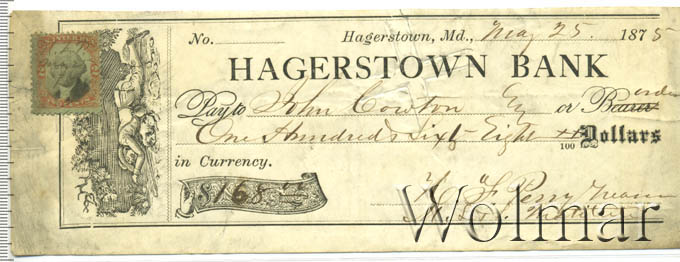 No. Hagerstown, Md., May 25. 1875
HAGERSTOWN BANK
Pay to John Cowton Esq or Bearer order
One Hundred Sixty Eight 100 Dollars
in Currency.
$168
F Perry
Wolmar